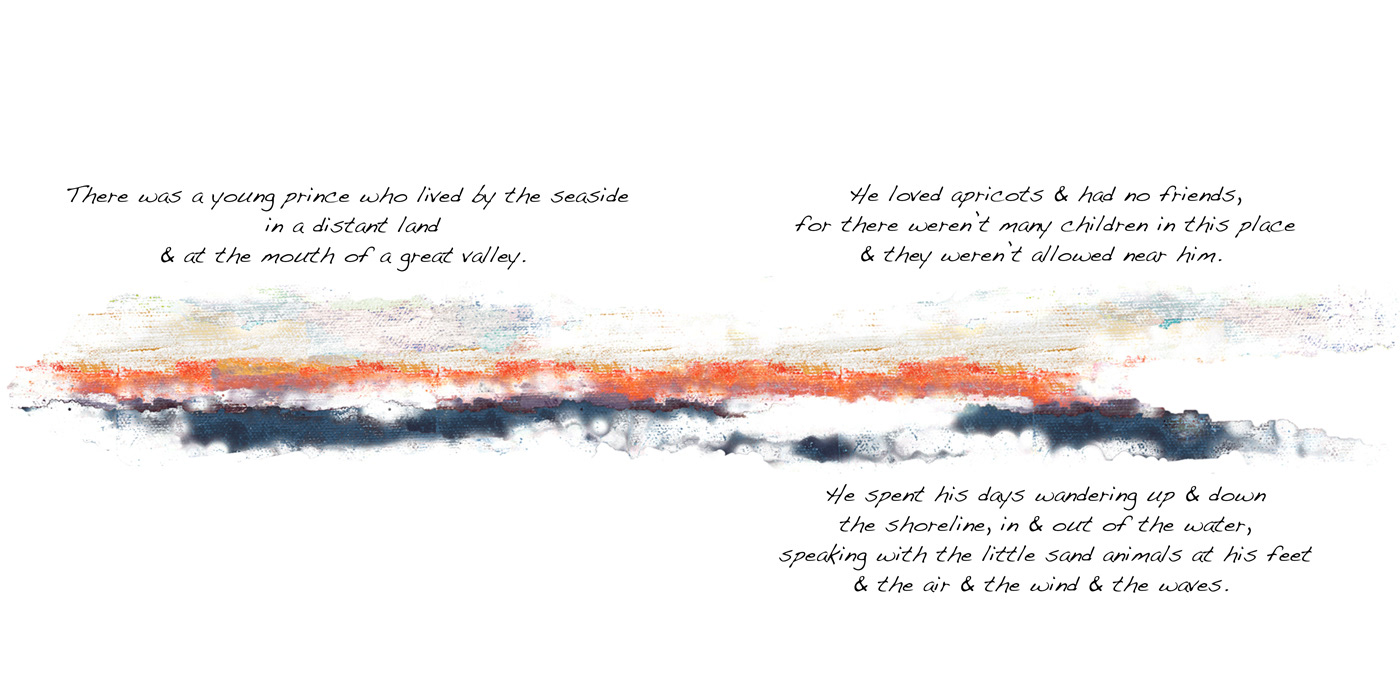 There was a young prince who lived by the seaside
in a distant land
& at the mouth of a great valley.
He loved apricots & had no friends,
for there weren't many children in this place
& they weren't allowed near him.
He spent his days wandering up & down
the shoreline, in & out of the water,
speaking with the little sand animals at his feet
& the air & the wind & the waves.